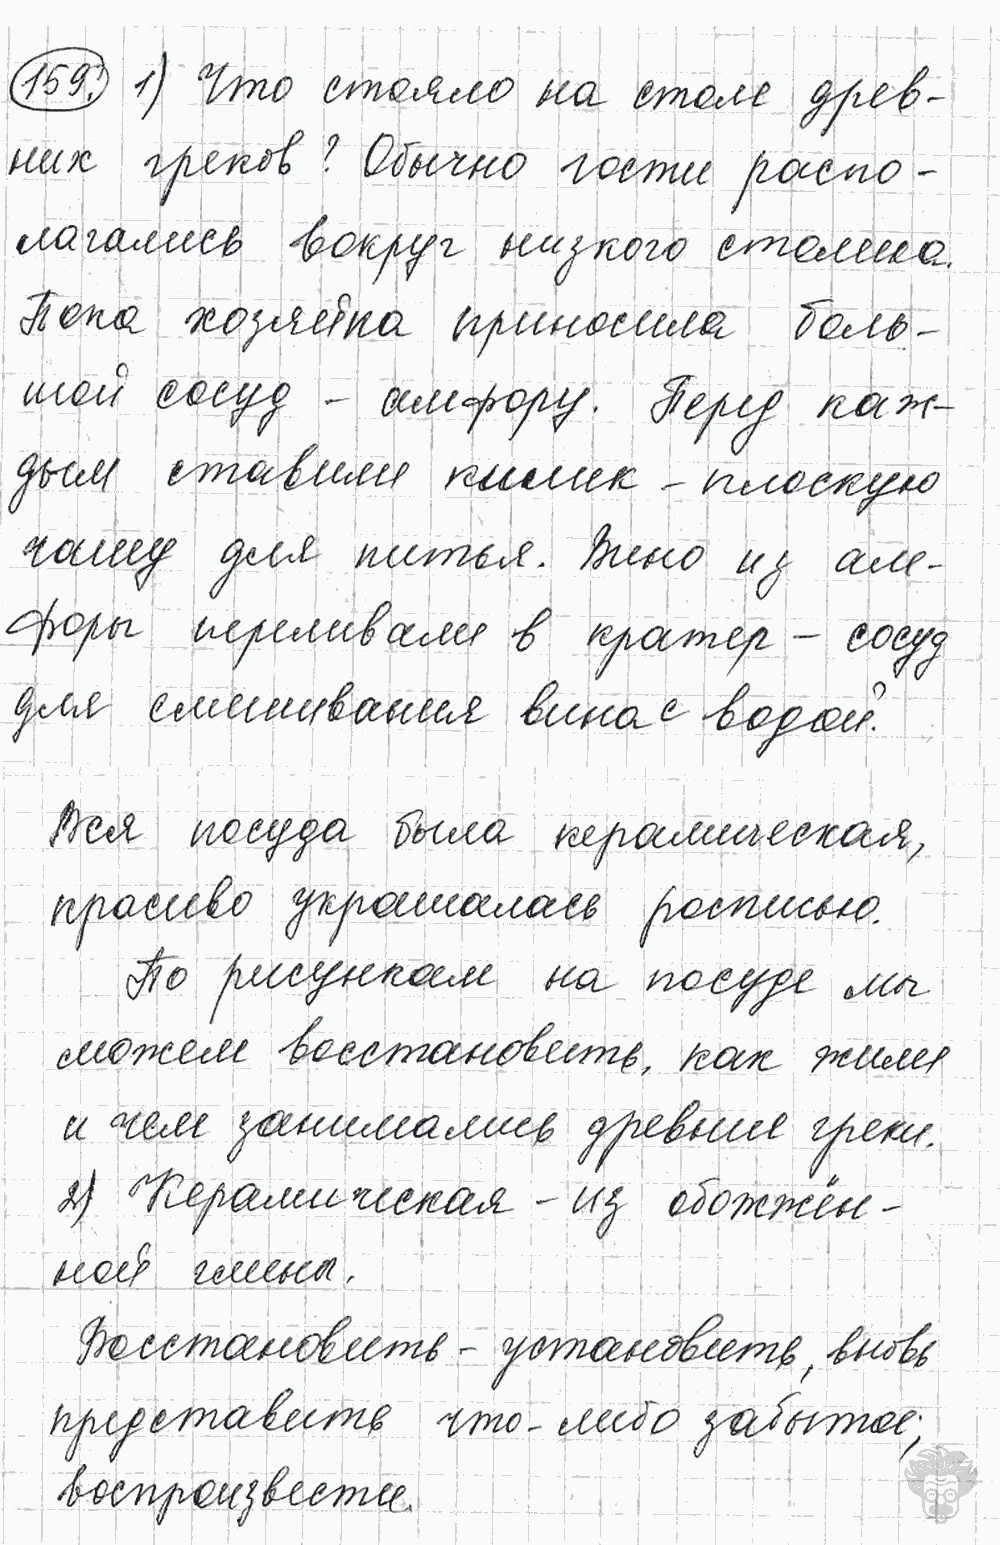 159. 1) Что стояло на столе древ-
них греков? Обычно гости распо-
лагались вокруг низкого столика.
Пока хозяйка приносила боль-
шой сосуд - амфору. Перед каж-
дым ставили килик - плоскую
чашу для питья. Вино из ам-
форы переливали в кратер - сосуд
для смешивания вина с водой.
Вся посуда была керамическая,
красиво украшалась росписью.
По рисункам на посуде мы
можем восстановить, как жили
и чем занимались древние греки.
2) Керамическая - из обожжён-
ной глины.
Восстановить - установить, вновь
представить что-либо забытое;
воспроизвести.